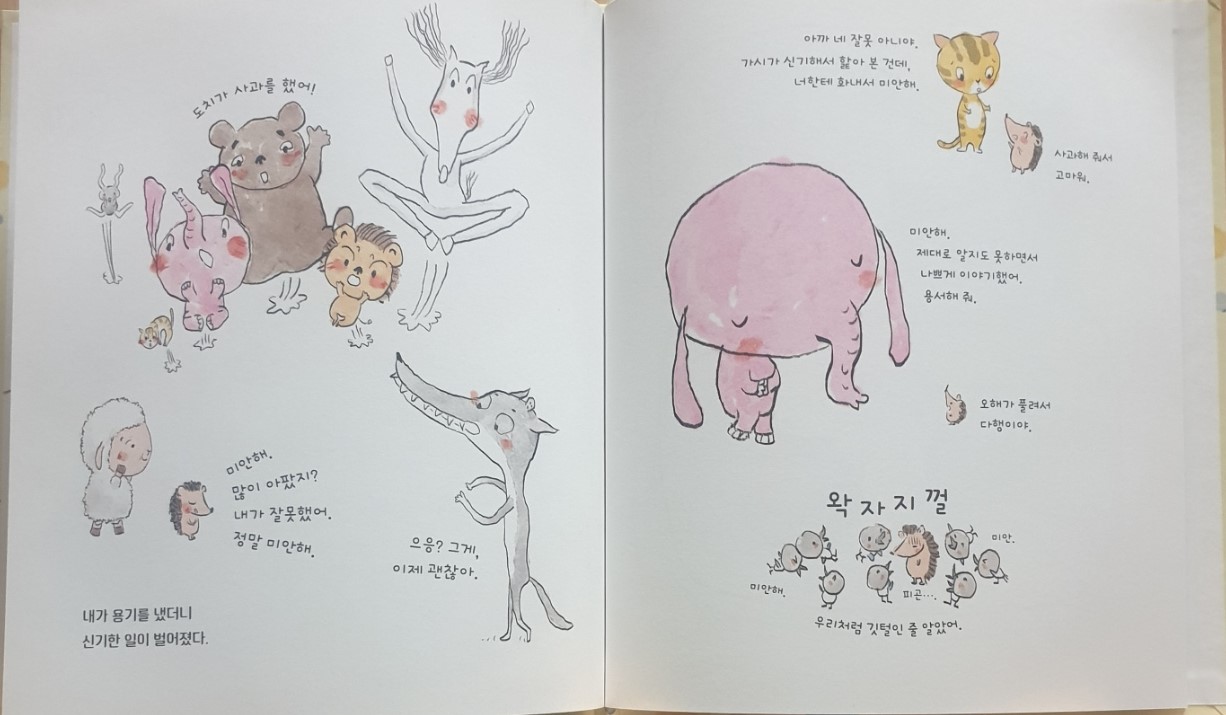 도치가 사과를 했어!
미안해.
많이 아팠지?
내가 잘못했어.
정말 미안해.
으응? 그게,
이제 괜찮아.
내가 용기를 냈더니
신기한 일이 벌어졌다.
아까 네 잘못 아니야.
가시가 신기해서 핥아 본 건데,
너한테 화내서 미안해.
사과해 줘서
고마워.
미안해.
제대로 알지도 못하면서
나쁘게 이야기했어.
용서해 줘.
오해가 풀려서
다행이야.
왁자지껄
미안.
미안해.
피곤….
우리처럼 깃털인 줄 알았어.